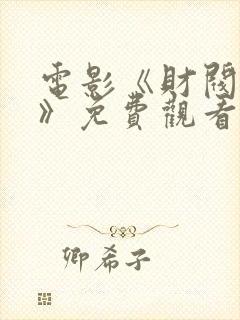 電影《財閥
》免費觀看
卿希子